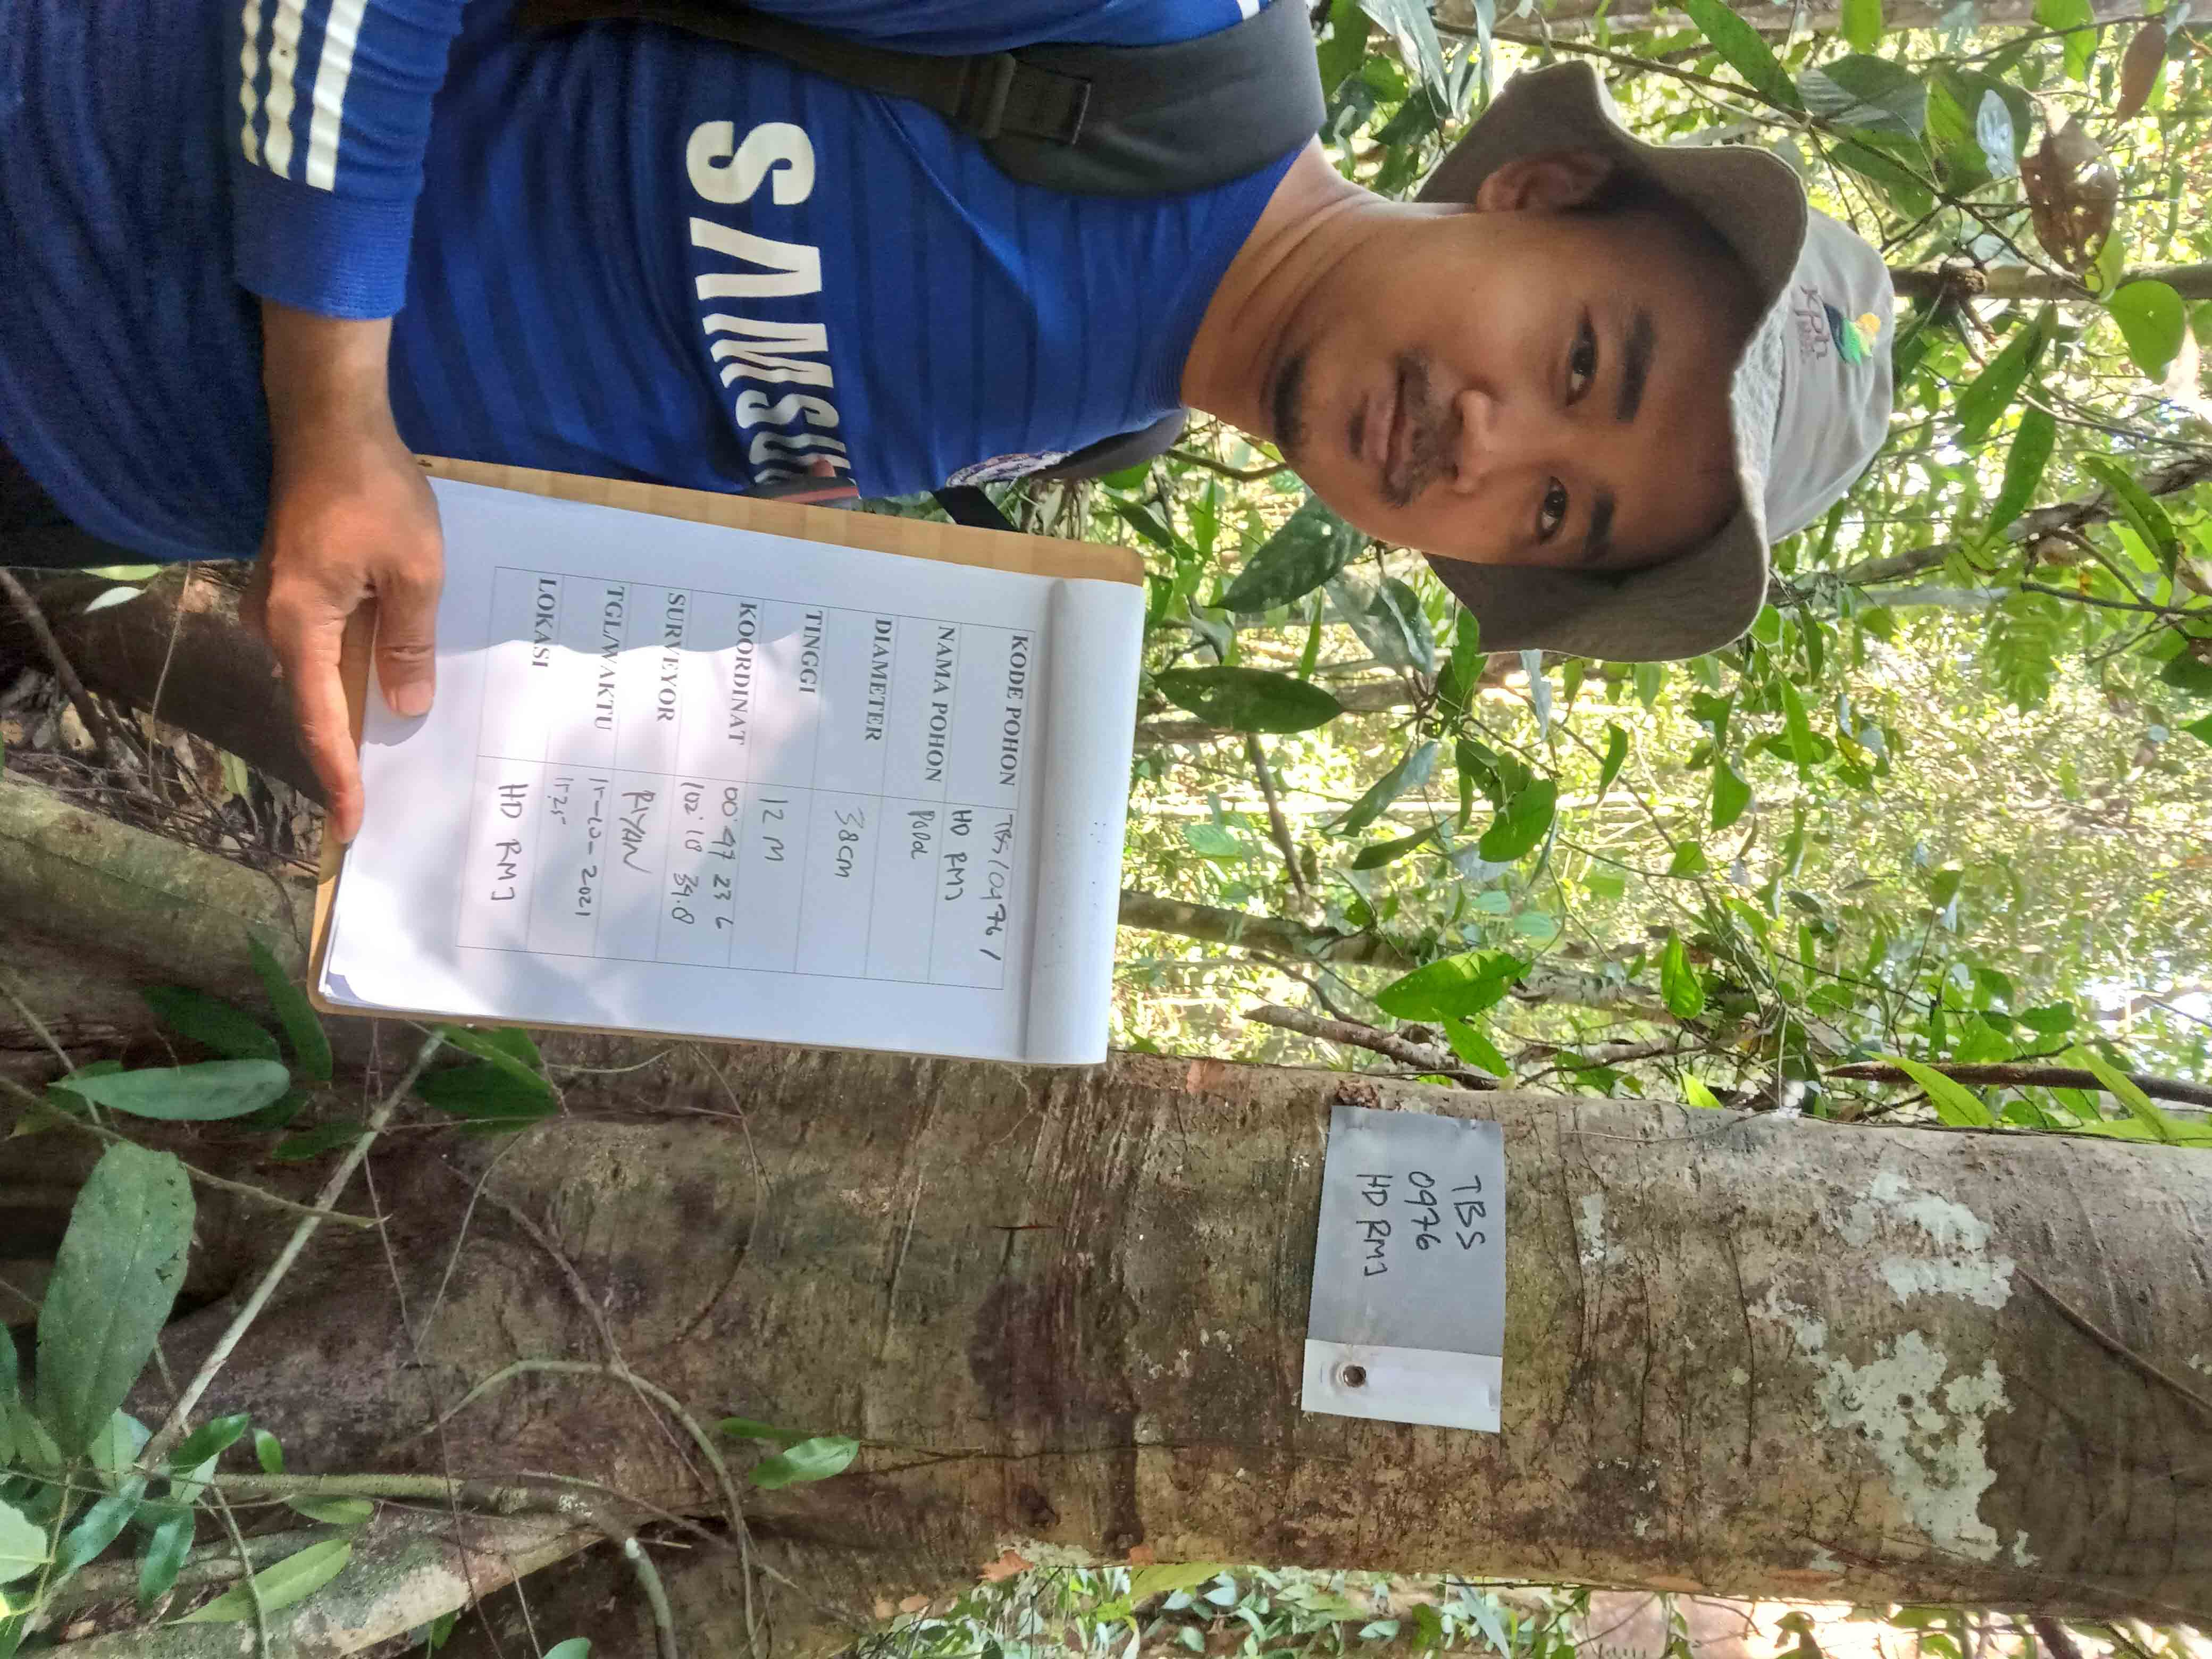 kph
TBS
0976
HD RMJ
SAMSU
KODE POHON TBS/0976/
HD RMJ
NAMA POHON POPOL
DIAMETER 38CM
TINGGI 12 M
KOORDINAT 00° 47 23 6
102° 18 34.8
SURVEYOR RIYAN
TGL/WAKTU 15-10-2021
15.25
LOKASI HD RMJ